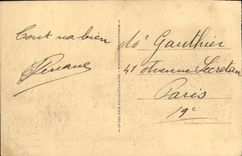 Tout va bien
Mr Gauthier
41 Avenue Secrétan
Paris
19e